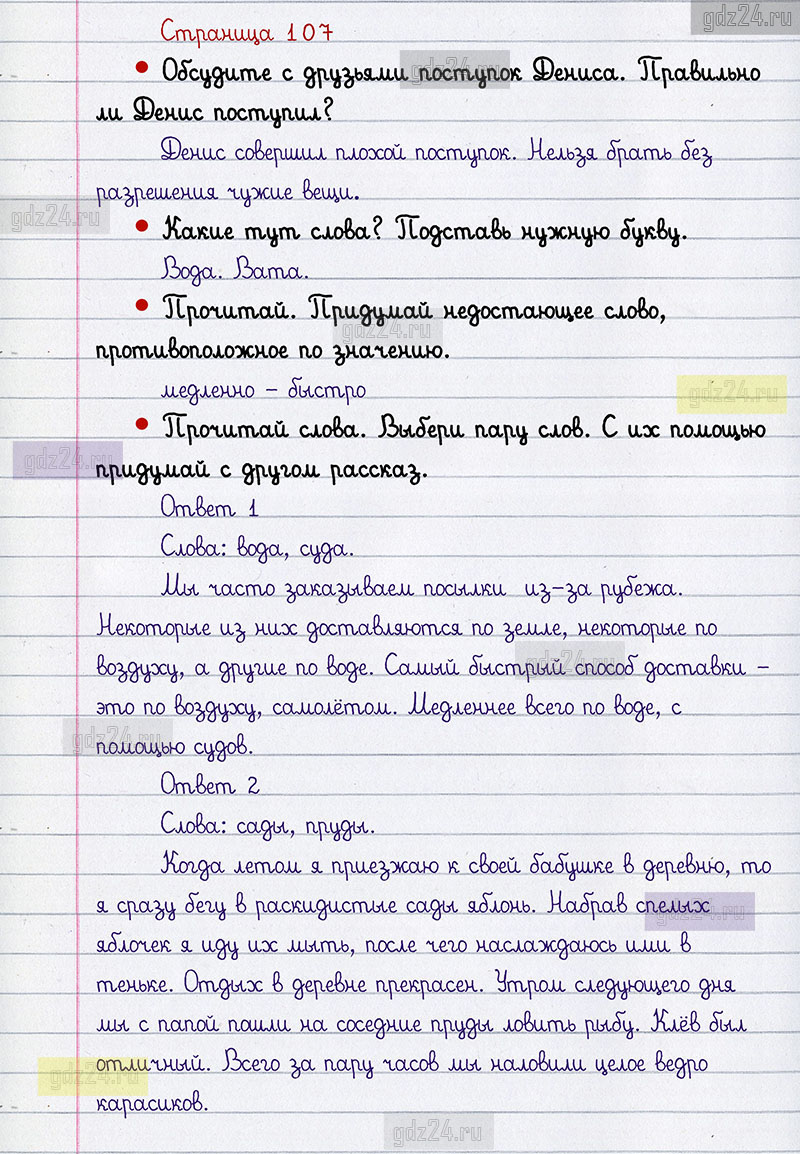 gdz24.ru
Страница 107
• Обсудите с друзьями поступок Дениса. Правильно
gdz24.ru
ли Денис поступил?
Денис совершил плохой поступок. Нельзя брать без
разрешения чужие вещи.
gdz24.ru
• Какие тут слова? Подставь нужную букву.
Вода. Вата.
• Прочитай. Придумай недостающее слово,
gdz24.ru
противоположное по значению.
медленно – быстро
gdz24.ru
• Прочитай слова. Выбери пару слов. С их помощью
gdz24.ru
придумай с другом рассказ.
Ответ 1
Слова: вода, суда.
Мы часто заказываем посылки из-за рубежа.
Некоторые из них доставляются по земле, некоторые по
воздуху, а другие по воде. Самый быстрый способ доставки –
gdz24.ru
это по воздуху, самолётом. Медленнее всего по воде, с
gdz24.ru
помощью судов.
Ответ 2
Слова: сады, пруды.
Когда летом я приезжаю к своей бабушке в деревню, то
я сразу бегу в раскидистые сады яблонь. Набрав спелых
gdz24.ru
яблочек я иду их мыть, после чего наслаждаюсь ими в
теньке. Отдых в деревне прекрасен. Утром следующего дня
мы с папой пошли на соседние пруды ловить рыбу. Клёв был
отличный. Всего за пару часов мы наловили целое ведро
gdz24.ru
карасиков.
gdz24.ru